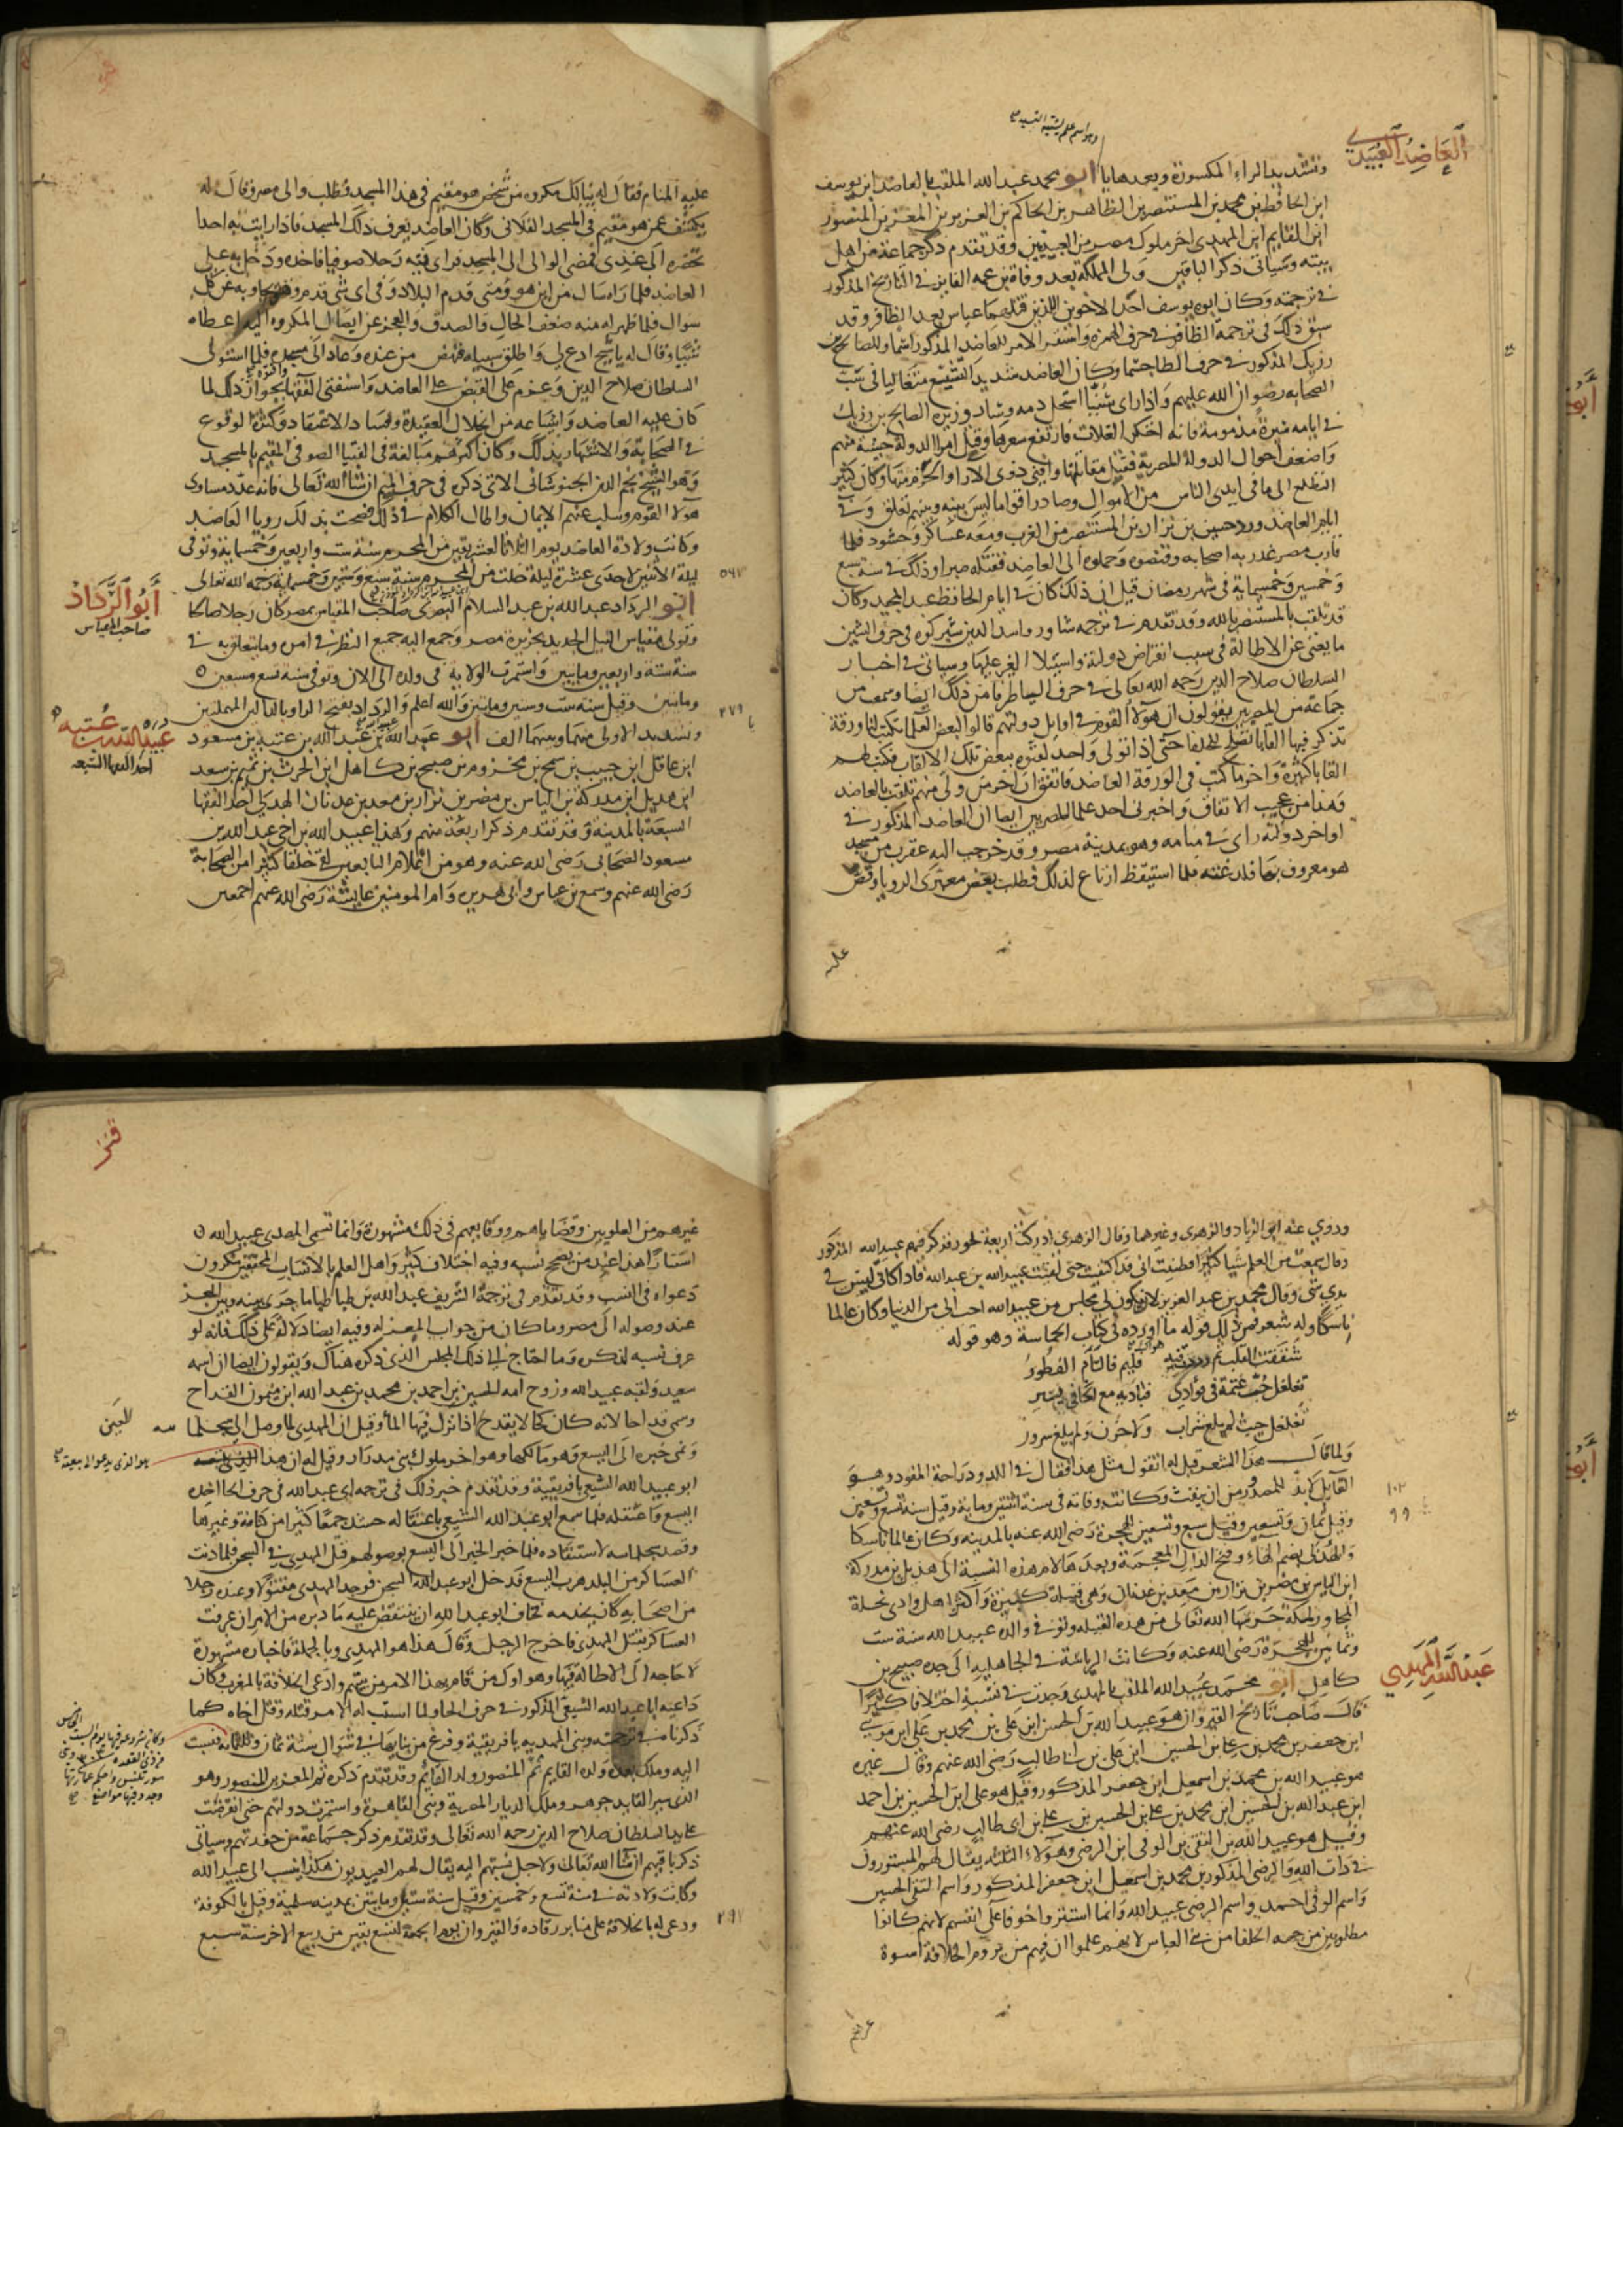 وهو اسم علم يشبه النسبه صح
العاضد العبيدي
وتشديد الراء المكسورة وبعدها يا ابو محمد عبد الله الملقب بالعاضد ابن يوسف
ابن الحافظ بن محمد بن المستنصر بن الظاهر بن الحاكم بن العزيز بن المعز بن المنصور
ابن القايم ابن المهدي اخر ملوك مصر من العبيديين وقد تقدم ذكر جماعة من اهل
بيته وسياتي ذكر الباقين ولي المملكة بعد وفاة بن عمه الفايز في التاريخ المذكور
في ترجمته وكان ابوه يوسف احد الاخوين اللذين قتلهما عباس بعد الظافر وقد
سبق ذلك في ترجمة الظافر في حرف الهمزة واستقر الامر للعاضد المذكور اسما وللصالح بن
رزيك المذكور في حرف الطا جسما وكان العاضد شديد التشيع متغاليا في سب
الصحابه رضوان الله عليهم واذا راى سنيا استحل دمه وسار وزيره الصالح بن رزيك
في ايامه سيرة مذمومة فانه احتكر الغلات فارتفع سعرها وقتل امرا الدولة خشية منهم
واضعف احوال الدولة المصرية فقتل مقاتلتها وافنى ذوي الارا والحزم منها وكان كثير
التطلع الى ما في ايدي الناس من الاموال وصادر اقواما ليس بينه وبينهم تعلق وفي
ايام العاضد ورد حسين بن نزار بن المستنصر من الغرب ومعه عساكر وحشود فلما
قارب مصر غدر به اصحابه وقبضوه وحملوه الى العاضد فقتله صبرا وذلك في سنة سبع
وخمسين وخمسماية في شهر رمضان قيل ان ذلك كان في ايام الحافظ عبد المجيد وكان
قد تلقب بالمستنصر بالله وقد تقدم في ترجمة شاور واسد الدين شيركوه في حرف الشين
ما يغني عن الاطالة في سبب انقراض دولته واستيلا الغز عليها وسياتي في اخبار
السلطان صلاح الدين رحمه الله تعالى في حرف اليا طرفا من ذلك ايضا وسمعت من
جماعة من المصريين يقولون ان هولا القوم في اوايل دولتهم قالوا لبعض العلما تكتب لنا ورقة
تذكر فيها القابا تصلح للخلفا حتى اذا تولى واحد لقبوه ببعض تلك الالقاب فكتب لهم
القابا كثيرة واخر ما كتب في الورقة العاضد فاتفق ان اخر من ولي منهم تلقب بالعاضد
وهذا من عجيب الاتفاق واخبرني احد علما المصريين ايضا ان العاضد المذكور في
اواخر دولته راى في منامه وهو بمدينة مصر وقد خرجت اليه عقرب من مسجد
هو معروف بها فلدغته فلما استيقظ ارتاع لذلك فطلب بعض معبري الرويا وقص
عليه
عليه المنام فقال له ينالك مكروه من شخص هو مقيم في هذا المسجد فطلب والي مصر وقال له
يكشف عمن هو مقيم في المسجد الفلاني وكان العاضد يعرف ذلك المسجد فاذا رايت به احدا
تحضره الى عندي فمضى الوالي الى المسجد فراى فيه رجلا صوفيا فاخذه ودخل به على
العاضد فلما راه سال من اين هو ومتى قدم البلاد وفي اي شي قدم وهو يجاوبه عن كل
سوال فلما ظهر له منه ضعف الحال والصدق والعجز عن ايصال المكروه اليه اعطاه
شيا وقال له يا شيخ ادع لي واطلق سبيله فنهض من عنده وعاد الى مسجده فلما استولى
السلطان صلاح الدين وعزم على القبض على العاضد واستفتى الفقها بجواز ذلك لما
كان عليه العاضد واشياعه من انحلال العقيدة وفساد الاعتقاد وكثرة الوقوع
في الصحابة والاشتهار بذلك وكان اكثرهم مبالغة في الفتيا الصوفي المقيم بالمسجد
وهو الشيخ نجم الدين الخبوشاني الاتي ذكره في حرف الميم ان شا الله تعالى فانه عدد مساوي
هولا القوم وسلب عنهم الايمان واطال الكلام في ذلك فصحت بذلك رويا العاضد
وكانت ولادة العاضد يوم الثلاثا لعشر بقين من المحرم سنة ست واربعين وخمسماية وتوفي
ليلة الاثنين لاحدى عشرة ليلة خلت من المحرم سنة سبع وستين وخمسماية رحمه الله تعالى
٥٦٧
أبو الرداد
صاحب المقياس
ابو الرداد عبد الله بن عبد السلام البصري صاحب المقياس بمصر كان رجلا صالحا
وتولى مقياس النيل الجديد بجزيرة مصر وجمع اليه جميع النظر في امره وما يتعلق به في
سنة ستة واربعين ومايتين واستمرت الولاية في ولده الى الان وتوفي سنة تسع وسبعين
ومايتين وقيل سنة ست وستين ومايتين والله اعلم والرداد بفتح الرا وبالدالين المهملتين
٢٧٩
عبيد الله بن عتبه
احد الفقها السبعه
وتشديد الاولى منهما وبينهما الف ابو عبد الله عبيد الله بن عبد الله بن عتبة بن مسعود
ابن غافل ابن حبيب بن شمخ بن مخزوم بن صبيح بن كاهل ابن الحرث بن تميم بن سعد
ابن هذيل ابن مدركة بن الياس بن مضر بن نزار بن معد بن عدنان الهذلي احد الفقها
السبعة بالمدينة وقد تقدم ذكر اربعة منهم وهذا عبيد الله بن اخي عبد الله بن
مسعود الصحابي رضي الله عنه وهو من اعلام التابعين لقي خلقا كثيرا من الصحابة
رضي الله عنهم وسمع بن عباس وابي هريره وام المومنين عايشة رضي الله عنهم اجمعين
وروي عنه ابو الزناد والزهري وغيرهما وقال الزهري ادركت اربعة بحور فذكر فيهم عبيد الله المذكور
وقال سمعت من العلم شيا كثيرا فظننت اني قد اكتفيت حتى لقيت عبيد الله بن عبد الله فاذا كاني ليس في
يدي شي وقال محمد بن عبد العزيز لان يكون لي مجلس من عبيد الله احب الي من الدنيا وكان عالما
ناسكا وله شعر فمن ذلك قوله ما اورده في كتاب الحماسة وهو قوله
شققت القلب ثم ذررت فيه هواك فليم فالتام الفطور
تغلغل حب عثمة في فوادي فباديه مع الخافي يسير
تغلغل حيث لم يبلغ شراب ولا حزن ولم يبلغ سرور
ولما قال هذا الشعر قيل له اتقول مثل هذا فقال في اللدود راحة المفود وهو
القايل لا بد للمصدور من ان ينفث وكانت وفاته في سنة اثنتين وماية وقيل سنة تسع وتسعين
١٠٢
٩٩
وقيل ثمان وتسعين وقيل سبع وتسعين للهجرة رضي الله عنه بالمدينه وكان عالما ناسكا
والهذلي بضم الهاء وفتح الذال المعجمة وبعدها لام هذه النسبة الى هذيل بن مدركة
ابن الياس بن مضر بن نزار بن معد بن عدنان وهي قبيلة كبيرة واكثر اهل وادي نخلة
المجاور لمكة حرسها الله تعالى من هذه القبيله وتوفي والده عبد الله سنة ست
وثمانين للهجرة رضي الله عنه وكانت الرياسة في الجاهلية الى جده صبيح بن
عبيد الله المهدي
كاهل ابو محمد عبيد الله الملقب بالمهدي وجدت في نسبه اختلافا كثيرا
قال صاحب تاريخ القيروان هو عبيد الله بن الحسن ابن علي بن محمد بن علي ابن موسى
ابن جعفر بن محمد بن علي بن الحسين ابن علي بن ابي طالب رضي الله عنهم وقال غيره
هو عبيد الله بن محمد بن اسمعيل ابن جعفر المذكور وقيل هو علي ابن الحسين بن احمد
ابن عبد الله بن الحسين ابن محمد بن علي بن الحسين بن علي بن ابي طالب رضي الله عنهم
وقيل هو عبيد الله بن التقي بن الوفي ابن الرضي وهولاء الثلثه يقال لهم المستورون
في ذات الله والرضي المذكور بن محمد بن اسمعيل ابن جعفر المذكور واسم التقي الحسين
واسم الوفي احمد واسم الرضي عبيد الله وانما استتروا خوفا على انفسهم لانهم كانوا
مطلوبين من جهه الخلفا من بني العباس لانهم علموا ان فيهم من يروم الخلافة اسوة
غيرهم
غيرهم من العلويين وقضاياهم ووقايعهم في ذلك مشهورة وانما تسمى المهدي عبيد الله
استتارا هذا عند من يصحح نسبه وفيه اختلاف كثير واهل العلم بالانساب المحققين ينكرون
دعواه في النسب وقد تقدم في ترجمة الشريف عبد الله بن طباطبا ما جرى بينه وبين المعز
عند وصوله الى مصر وما كان من جواب المعز له وفيه ايضا دلالة على ذلك فانه لو
عرف نسبه لذكره وما احتاج الى ذلك المجلس الذي ذكره هناك ويقولون ايضا ان اسمه
سعيد ولقبه عبيد الله وزوج امه الحسين بن احمد بن محمد بن عبد الله ابن ميمون القداح
وسمي قداحا لانه كان كحالا يقدح اذا نزل فيها الما وقيل ان المهدي لما وصل الى سجلماسه
العين
ونمى خبره الى اليسع وهو مالكها وهو اخر ملوك بني مدرار وقيل له ان هذا
هو الذي يدعو الى بيعته صح
ابو عبيد الله الشيعي بافريقية وقد تقدم خبر ذلك في ترجمة ابي عبد الله في حرف الحا اخذه
اليسع واعتقله فلما سمع ابو عبد الله الشيعي باعتقاله حشد جمعا كثيرا من كتامة وغيرها
وقصد سجلماسه لاستنقاذه فلما خبر الخبر الى اليسع بوصولهم قتل المهدي في السجن فلما دنت
العساكر من البلد هرب اليسع فدخل ابو عبد الله السجن فوجد المهدي مقتولا وعنده رجلا
من اصحابه كان يخدمه فخاف ابو عبد الله ان ينتقض عليه ما دبره من الامر ان عرفت
العساكر بقتل المهدي فاخرج الرجل وقال هذا هو المهدي وبالجملة فاخباره مشهورة
لا حاجه الى الاطالة فيها وهو اول من قام بهذا الامر من بيتهم وادعى الخلافة بالمغرب وكان
داعيه ابا عبد الله الشيعي المذكور في حرف الحا ولما استتب له الامر قتله وقتل اخاه كما
ذكرنا في ترجمته وبنى المهدية بافريقية وفرغ من بنايها في شوال سنة ثمان وثلثماية فنسبت
وكان شروعه فيها يوم السبت
من ذي القعده سنة ٣٠٣ وبنى
سور تونس واحكم عمارتها
وجدد فيها مواضع صح
اليه وملك بعده ولده القايم ثم المنصور ولد القايم وقد تقدم ذكره ثم المعز بن المنصور وهو
الذي سير القايد جوهر وملك الديار المصرية وبنى القاهرة واستمرت دولتهم حتى انقرضت
على يد السلطان صلاح الدين رحمه الله تعالى وقد تقدم ذكر جماعة من حفدتهم وسياتي
ذكر باقيهم ان شا الله تعالى ولاجل نسبتهم اليه يقال لهم العبيديون هكذا ينسب الى عبيد الله
وكانت ولادته في سنة تسع وخمسين وقيل سنة ستين ومايتين بمدينه سلمية وقيل بالكوفة
ودعي له بالخلافة على منابر رقاده والقيروان يوم الجمعة لتسع بقين من ربيع الاخر سنة سبع
٢٩٧